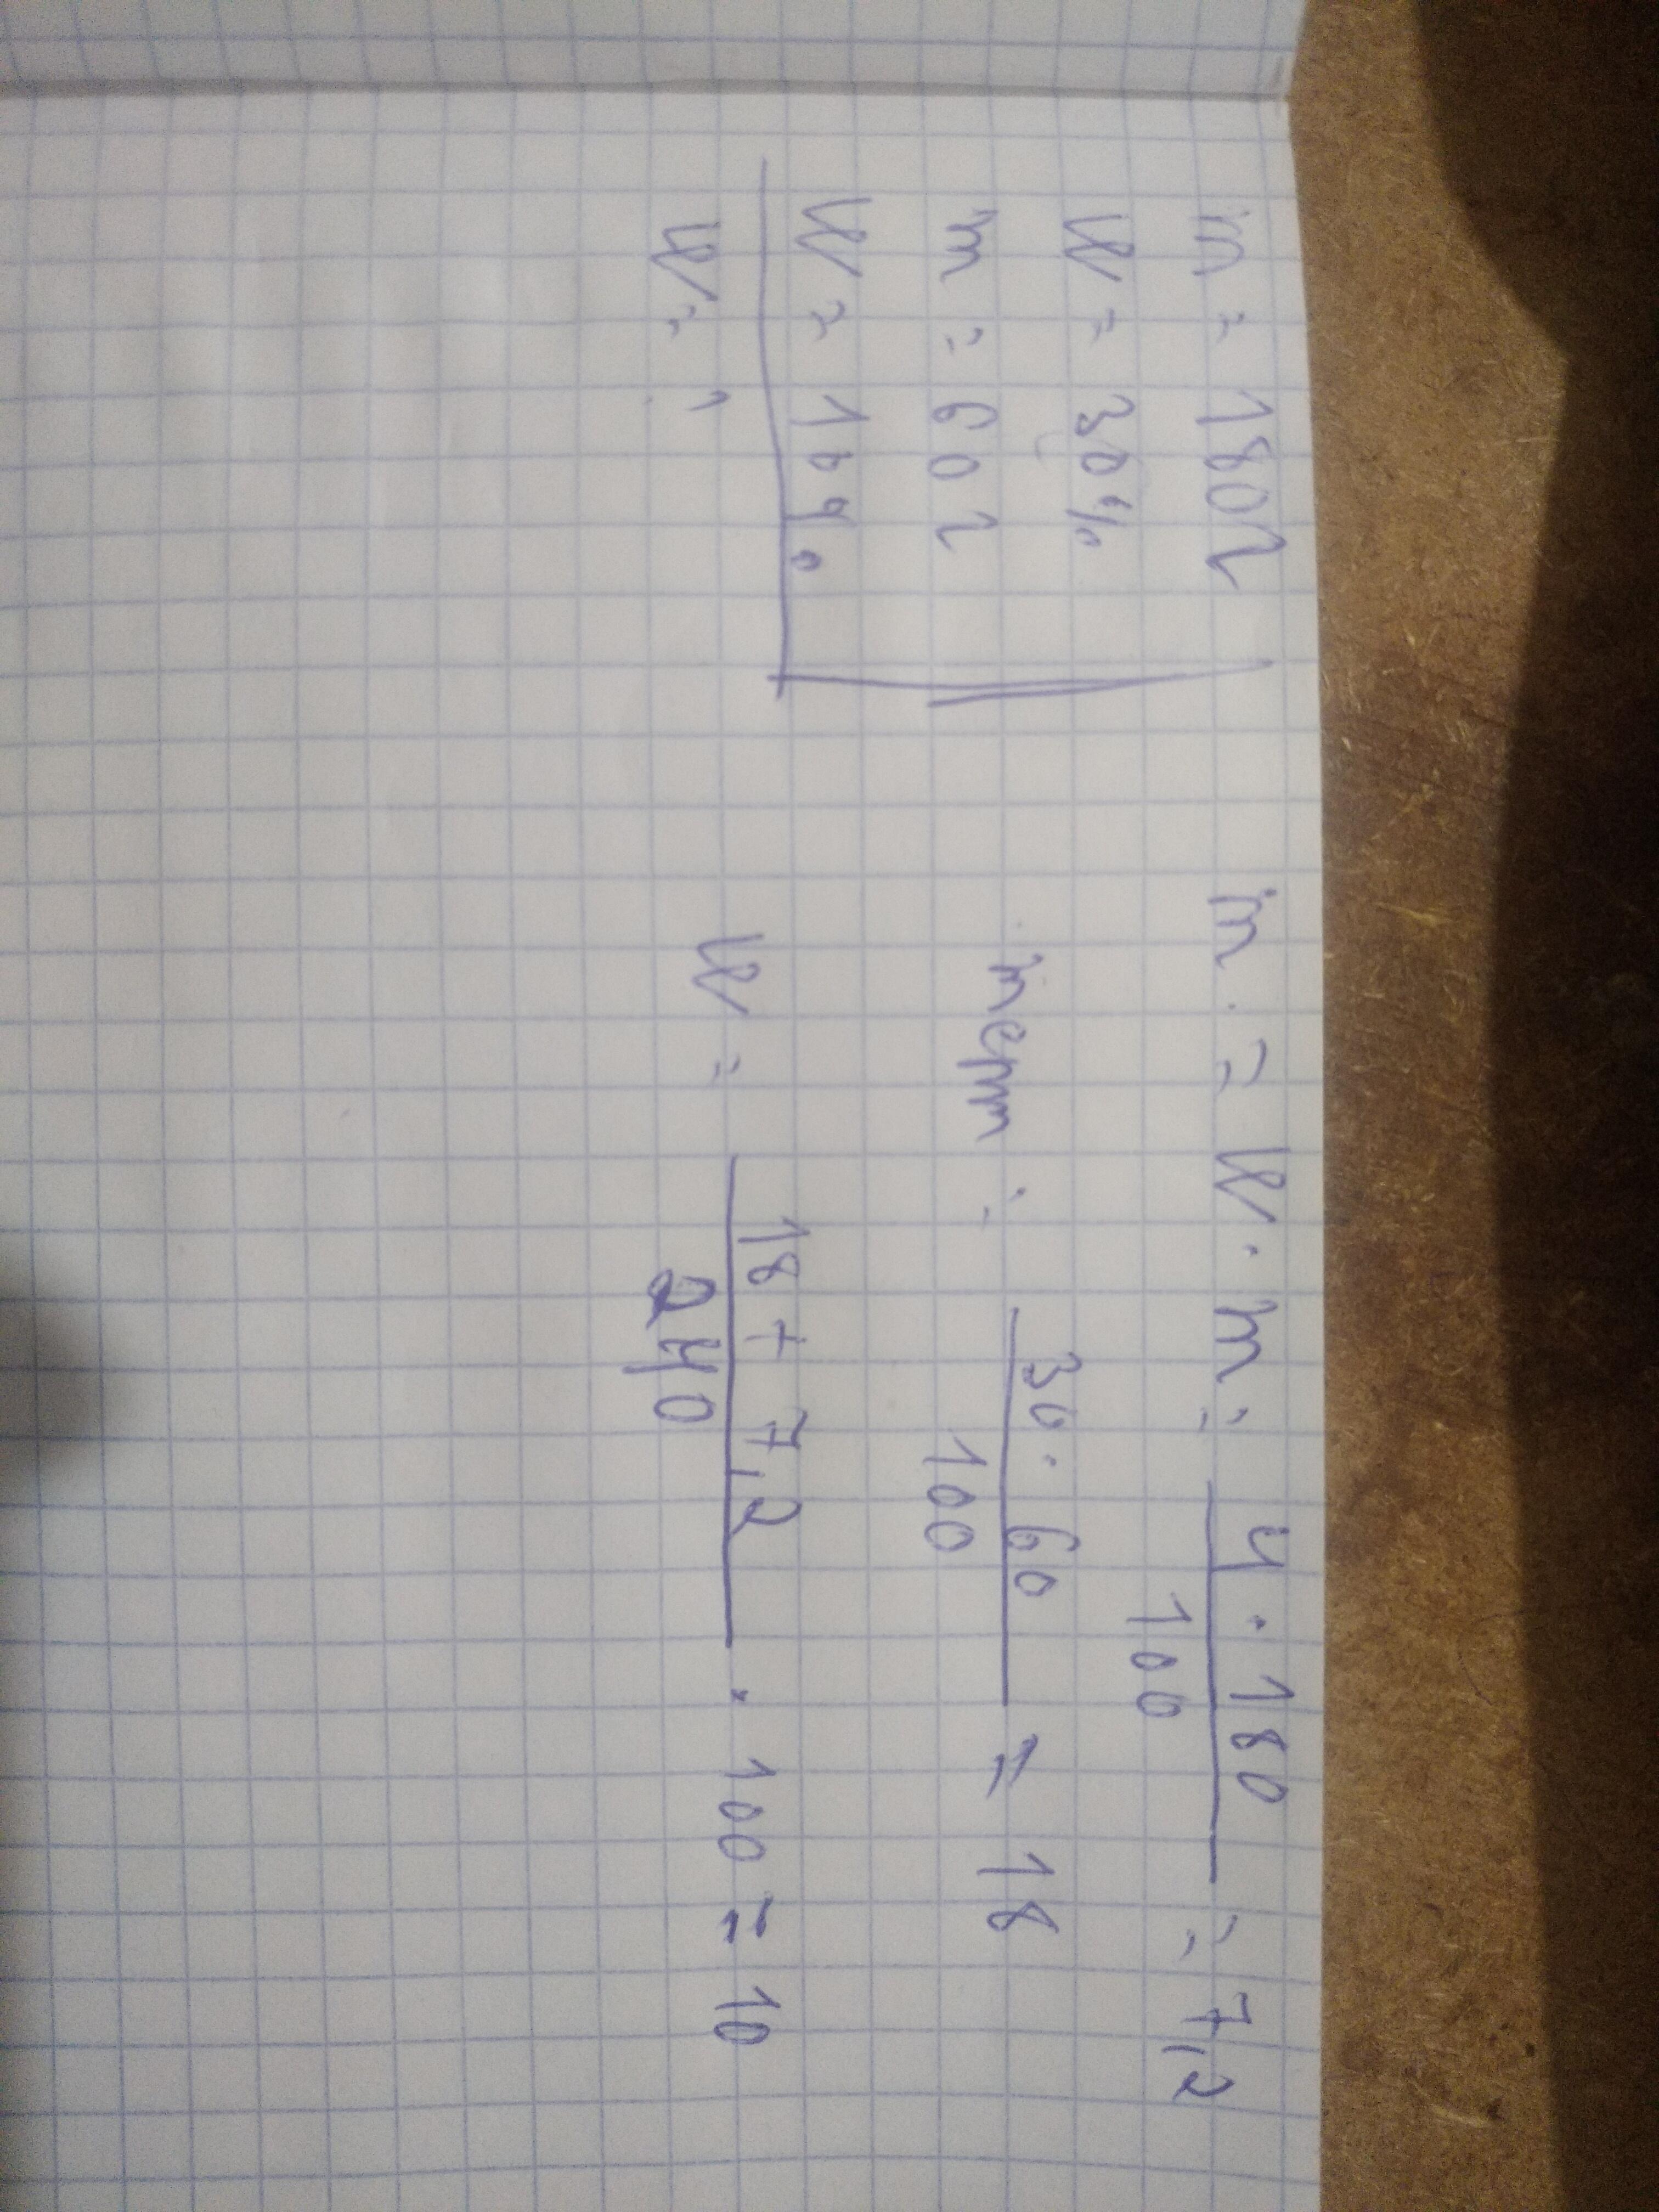 m = 180г
W = 30%
m = 60г
W = 10%
W = ?
m = W · m = 4 · 180 / 100 = 7,2
30 · 60 / 100 = 18
W = 18 + 7,2 / 240 · 100 = 10